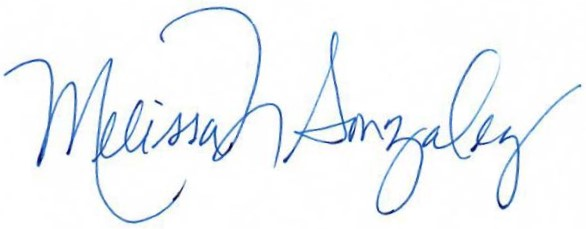 Melissa N Gonzalez